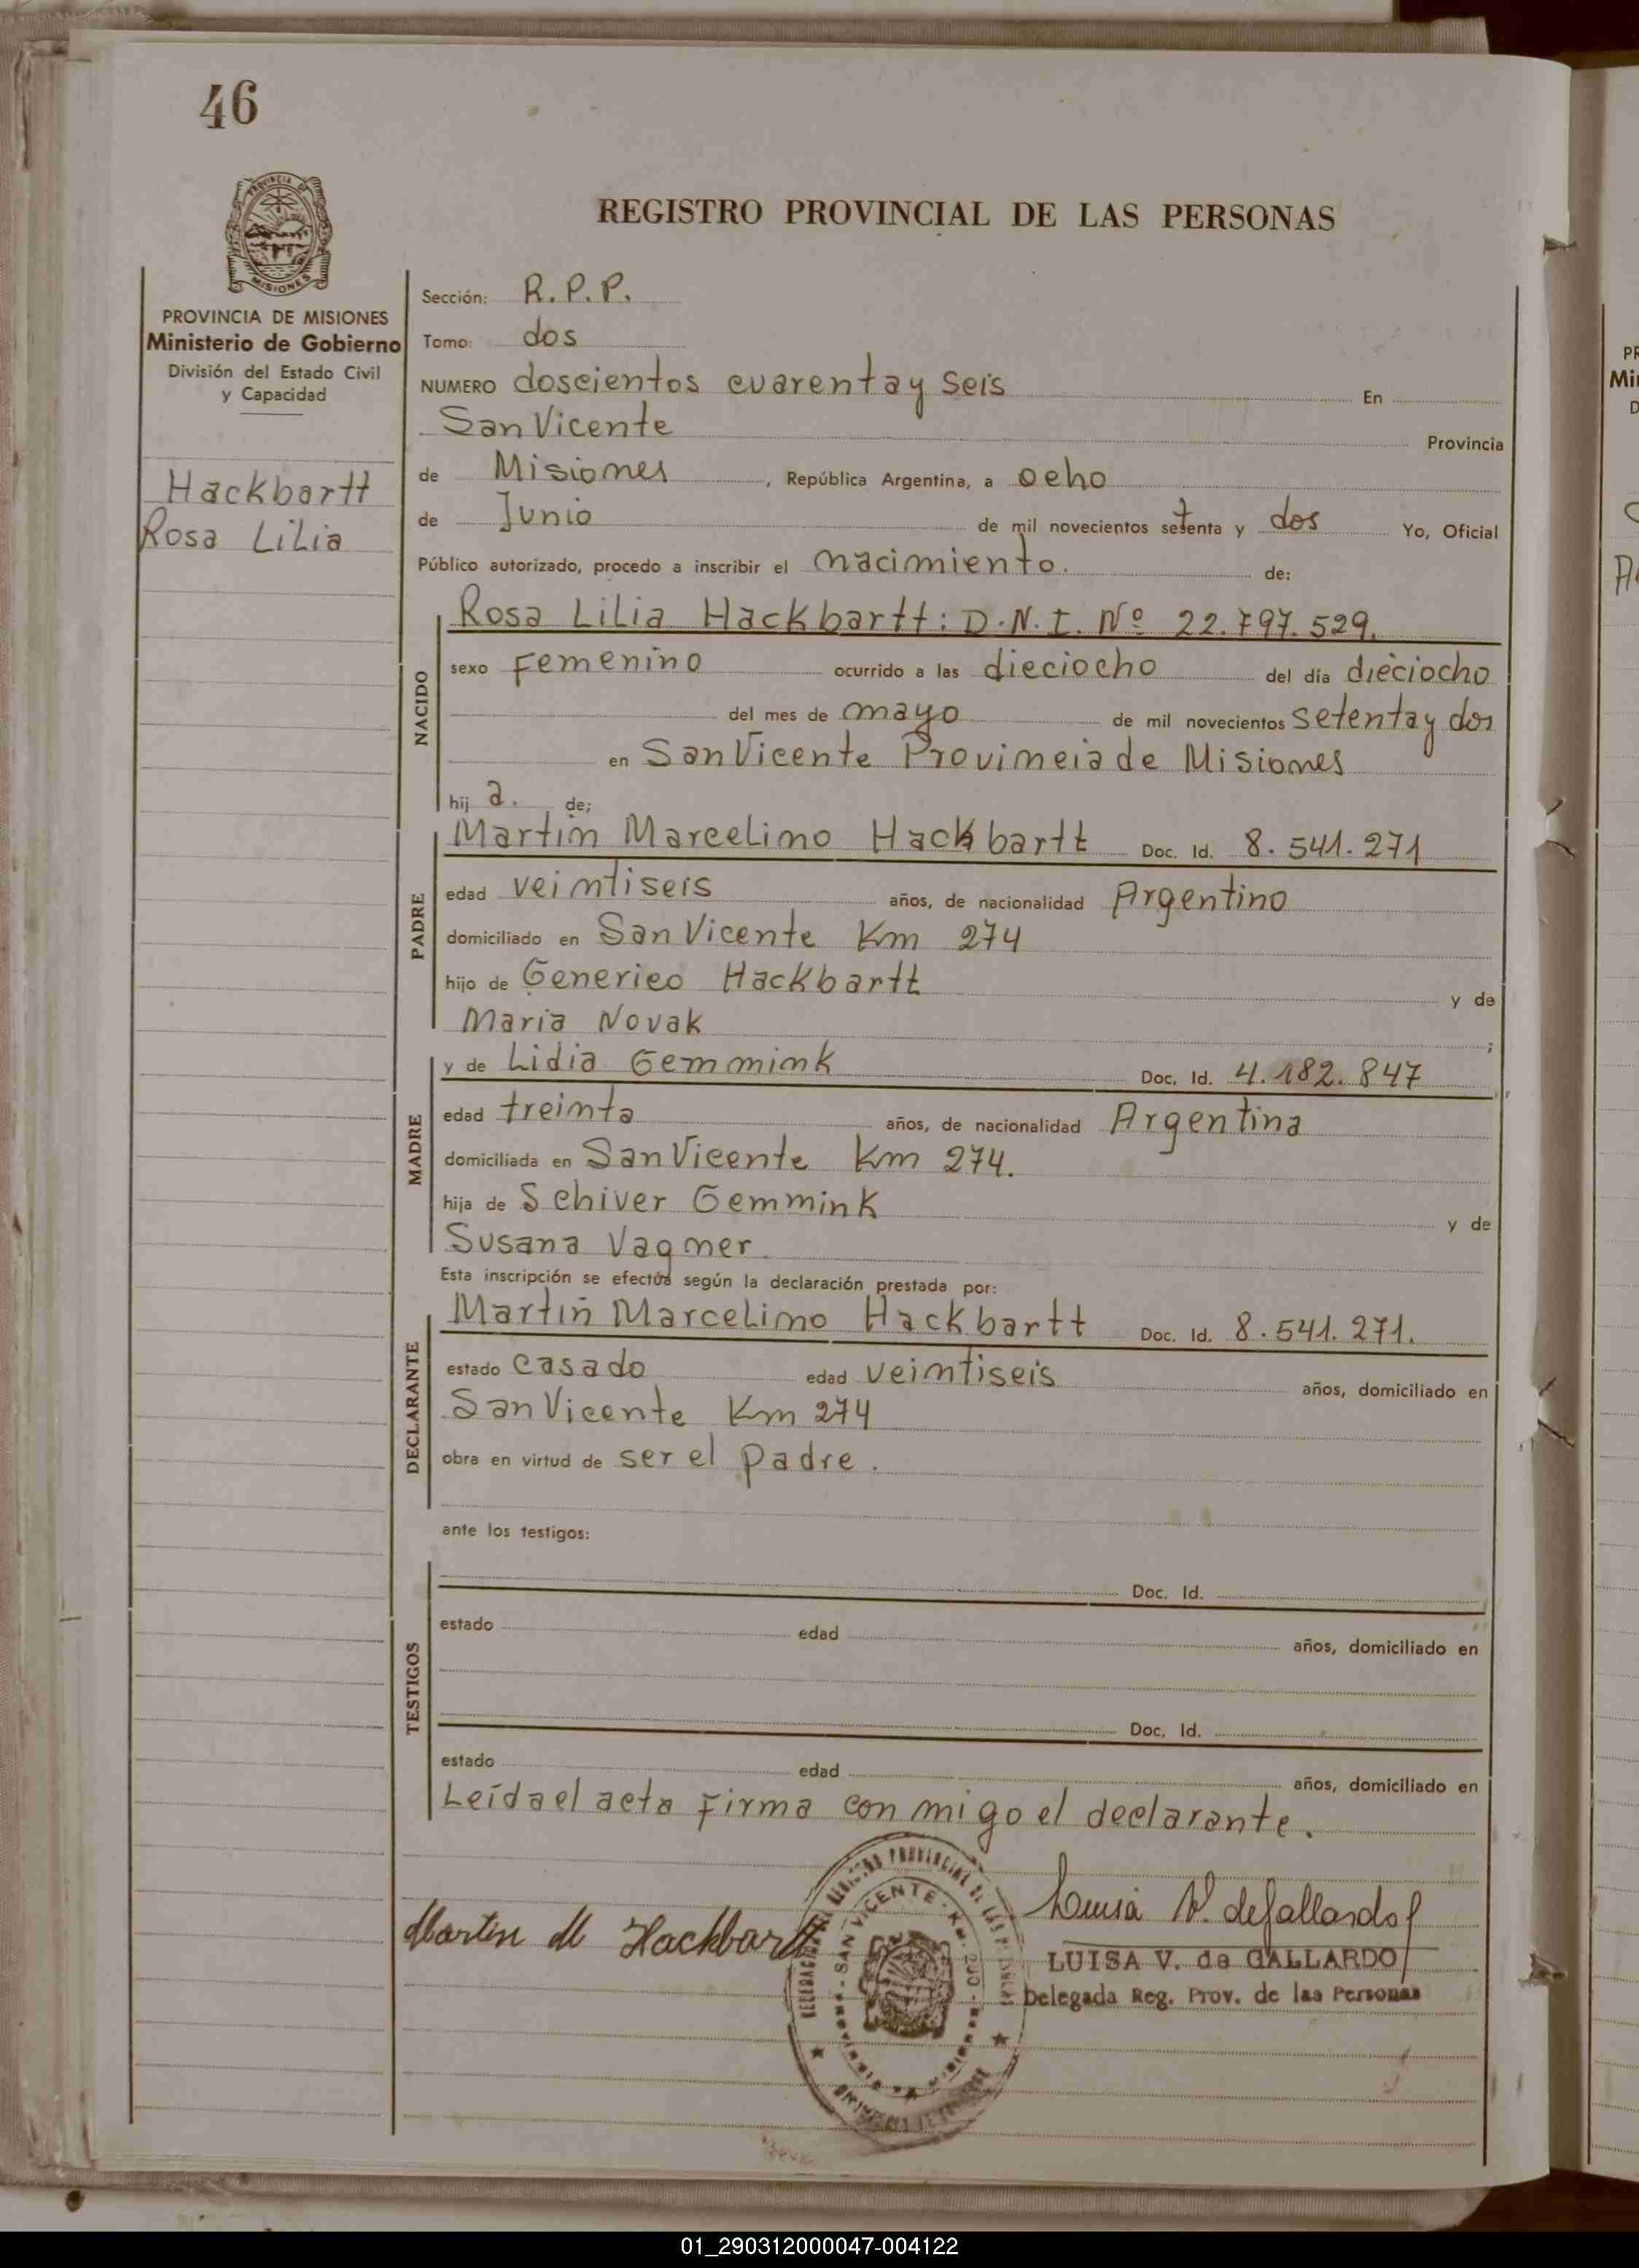 46
PROVINCIA DE
MISIONES
REGISTRO PROVINCIAL DE LAS PERSONAS
PROVINCIA DE MISIONES
Ministerio de Gobierno
División del Estado Civil
y Capacidad
Hackbartt
Rosa Lilia
Sección: R.P.P.
Tomo: dos
NUMERO doscientos cuarenta y seis En
San Vicente Provincia
de Misiones, República Argentina, a ocho
de Junio de mil novecientos setenta y dos Yo, Oficial
Público autorizado, procedo a inscribir el nacimiento. de:
NACIDO
Rosa Lilia Hackbartt: D.N.I. Nº 22.797.529.
sexo Femenino ocurrido a las dieciocho del día dieciocho
del mes de mayo de mil novecientos setenta y dos
en San Vicente Provincia de Misiones
hij a. de;
PADRE
Martin Marcelino Hackbartt Doc. Id. 8.541.271
edad veintiseis años, de nacionalidad Argentino
domiciliado en San Vicente Km 274
hijo de Generico Hackbartt y de
Maria Novak ;
MADRE
y de Lidia Gemmink Doc. Id. 4.182.847
edad treinta años, de nacionalidad Argentina
domiciliada en San Vicente Km 274.
hija de Schiver Gemmink y de
Susana Vagner.
Esta inscripción se efectúa según la declaración prestada por:
DECLARANTE
Martin Marcelino Hackbartt Doc. Id. 8.541.271.
estado casado edad veintiseis años, domiciliado en
San Vicente Km 274
obra en virtud de ser el padre.
ante los testigos:
TESTIGOS
Doc. Id.
estado edad años, domiciliado en
Doc. Id.
estado edad años, domiciliado en
Leída el acta firma conmigo el declarante.
Martin M Hackbartt
SAN VICENTE - Km.
Luisa V. de Gallardo
LUISA V. de GALLARDO
Delegada Reg. Prov. de las Personas
01_290312000047-004122